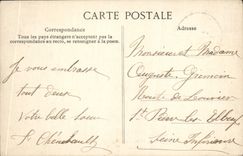 CARTE POSTALE
Correspondance
Tous les pays étrangers n'acceptent pas la
correspondance au recto, se renseigner à la poste.
Adresse
Je vous embrasse
tout deux
Votre belle soeur
Monsieur et Madame
Auguste
Route de Louviers
St Pierre les Elbeuf
Seine Inférieure